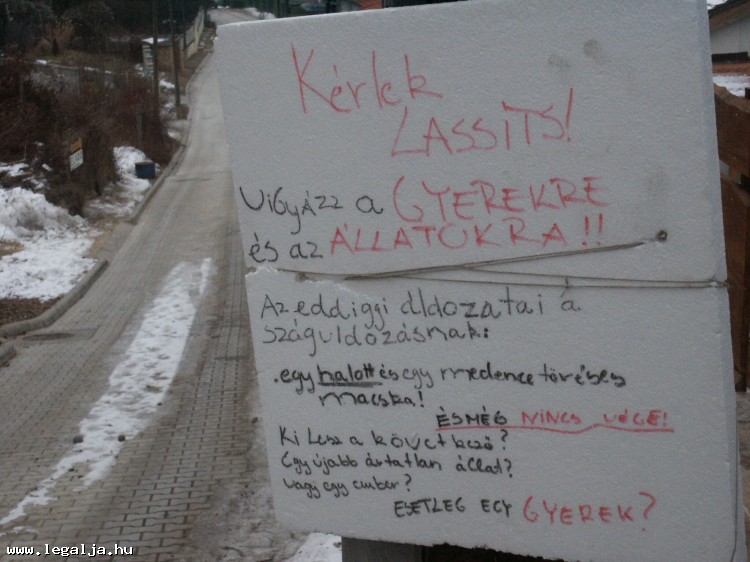 Kérlek
LASSÍTS!
Vigyázz a GYEREKRE
és az ÁLLATOKRA!!
Az eddiggi áldozatai a
száguldozásnak:
.egy halott és egy medence töréses
macska!
ÉS MÉG NINCS VÉGE!
Ki Lesz a következő?
Egy újabb ártatlan állat?
vagy egy ember?
ESETLEG EGY GYEREK?
www.legalja.hu